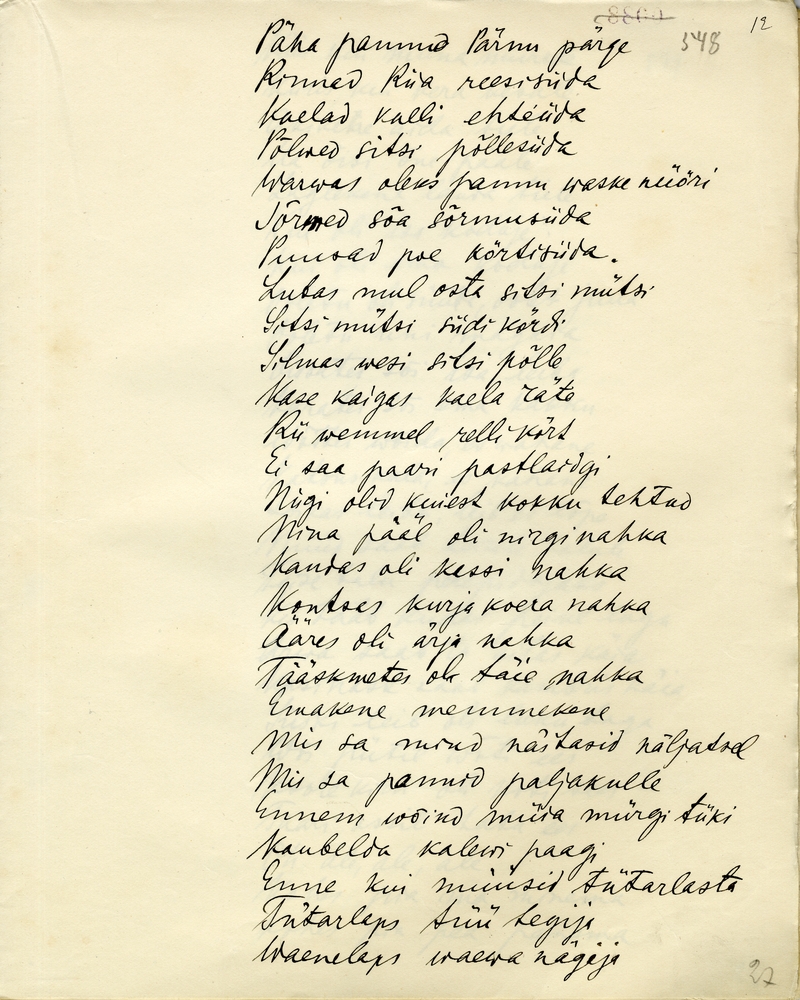 12
548
Päha pannud Pärnu pärge
Rinnad Riia reesisiida
Kaelad kulli ehtéiida
Põlwed sitsi põllesiida
Warwas oleks pannu waske nüöri
Sõrmed sõa sõrmusiida
Puusad poe körtisiida.
Lubas mul osta sitsi mütsi
Sitsi mütsi siidi kördi
Silmas wesi sitsi põlle
Kase kaigas kaela räte
Rii wemmel relli kört
Ei saa paari pastlaidgi
Niigi olid kuiest kokku tehtud
Nina pääl oli nirginahka
Kandas oli kassi nahka
Kontsas kurja koera nahka
Ääres oli ärja nahka
Tääskmetes oli täie nahka
Emakene memmekene
Mis sa mind näitasid näljatsel
Mis sa pannid paljakulle
Ennem wõind müia mürgi tüki
Kaubelda kalewi paagi
Enne kui müüsid tütarlasta
Tütarlaps tüü tegija
Waenelaps waewa nägija
27